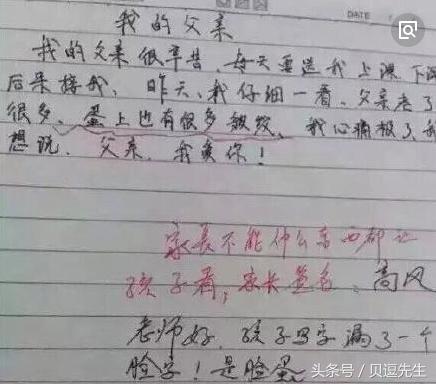 我的父亲
DATE
我的父亲很辛苦 每天要送我上课下课
后来接我,昨天、我仔细一看、父亲老了
很多、蛋上也有很多皱纹、我心痛极了,我
想说、父亲、我爱你!
家长不能什么东西都让
孩子看,家长签名:高风
老师好,孩子写字漏了一个
脸字!是脸蛋
头条号/贝逗先生